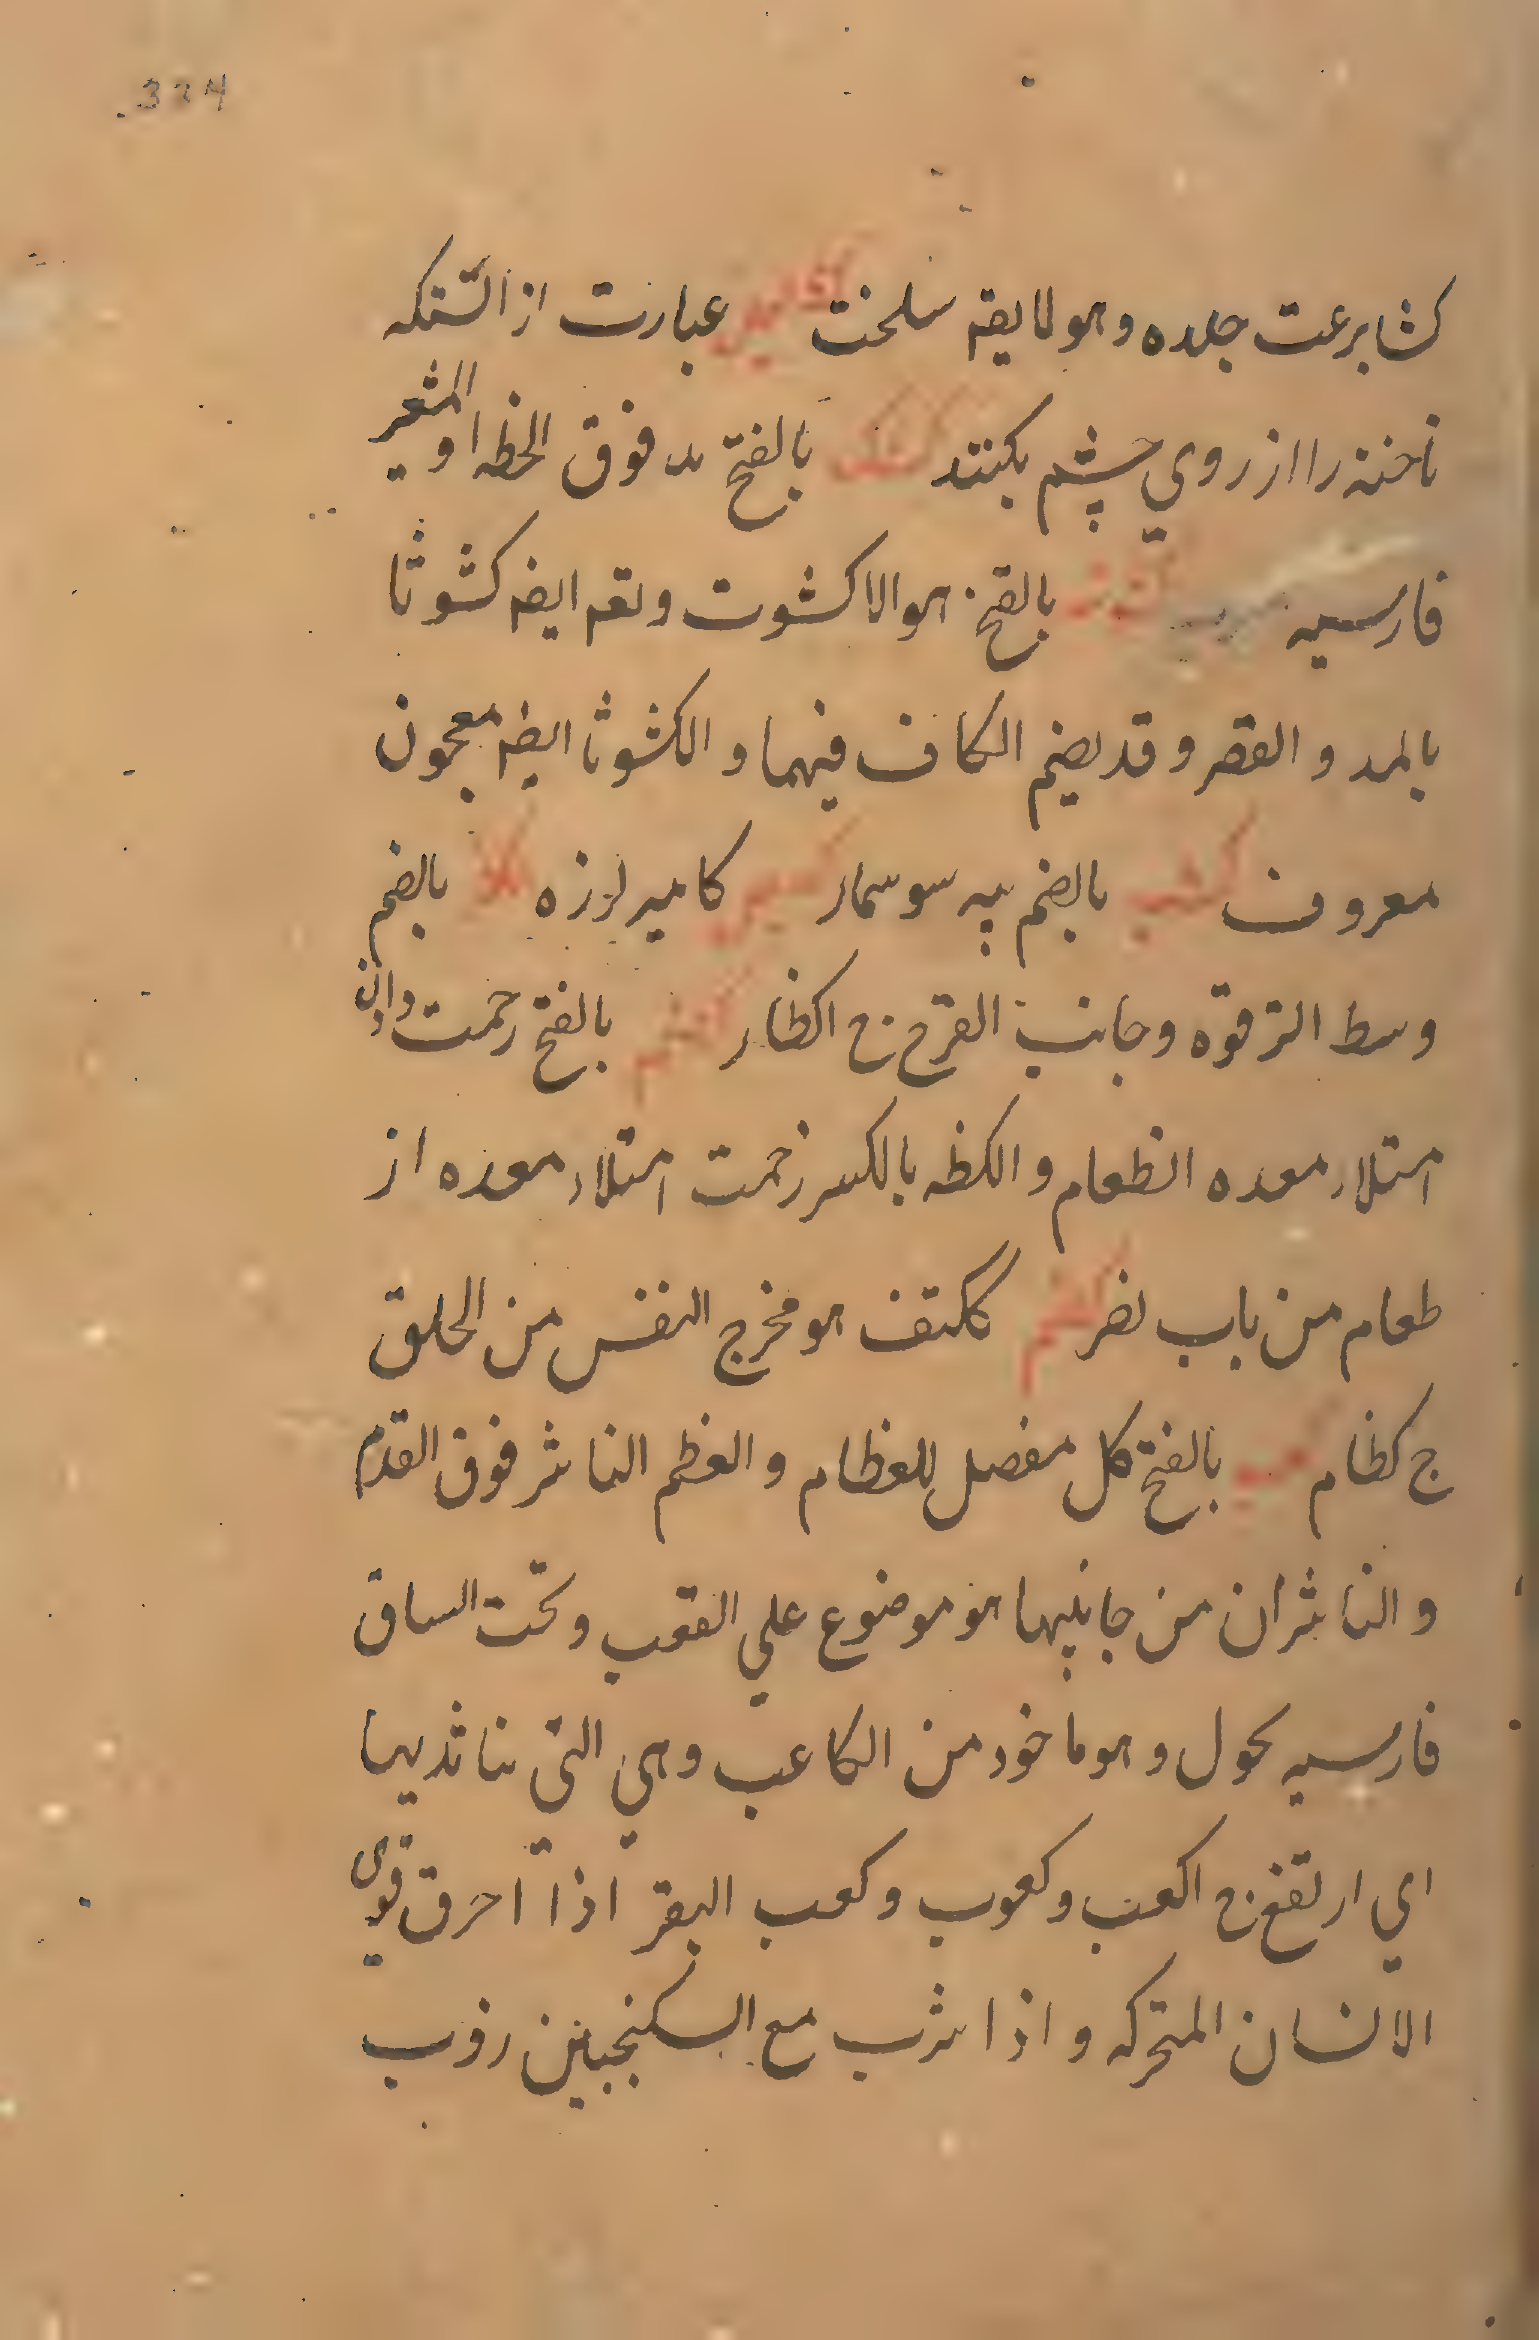 334
كشا برعت جلده و هو لا يقم سلخت عبارت از انستكه
ناخنه را از روي چشم بكنند كشك بالفتح بد فوق الحظه او المثعير
فارسيه بالفتح هو الاكشوت ويقم ايضه كشوثا
بالمد و القصر و قد يضم الكاف فيهما و الكشوثا ايضه معجون
معروف كشيه بالضم پيه سوسمار كامير لرزه بالضم
وسط الترقوة وجانب الفرج ج اكظار بالفتح زحمت وادن
امتلاء معده الطعام و الكظه بالكسر زحمت امتلاء معده از
طعام من باب نصر كظم ككتف هو مخرج النفس من الحلق
ج كظام بالفتح كل مفصل للعظام و العظم الناشر فوق القدم
و الناشران من جانبيها هو موضوع علي العقب و تحت الساق
فارسيه بجول و هو ماخوذ من الكاعب و هي التي نتا ثديها
اي ارتفع ج اكعب و كعوب و كعب البقر اذا احرق قوي
الانسان المتحركه و اذا شرب مع السكنجبين زوب